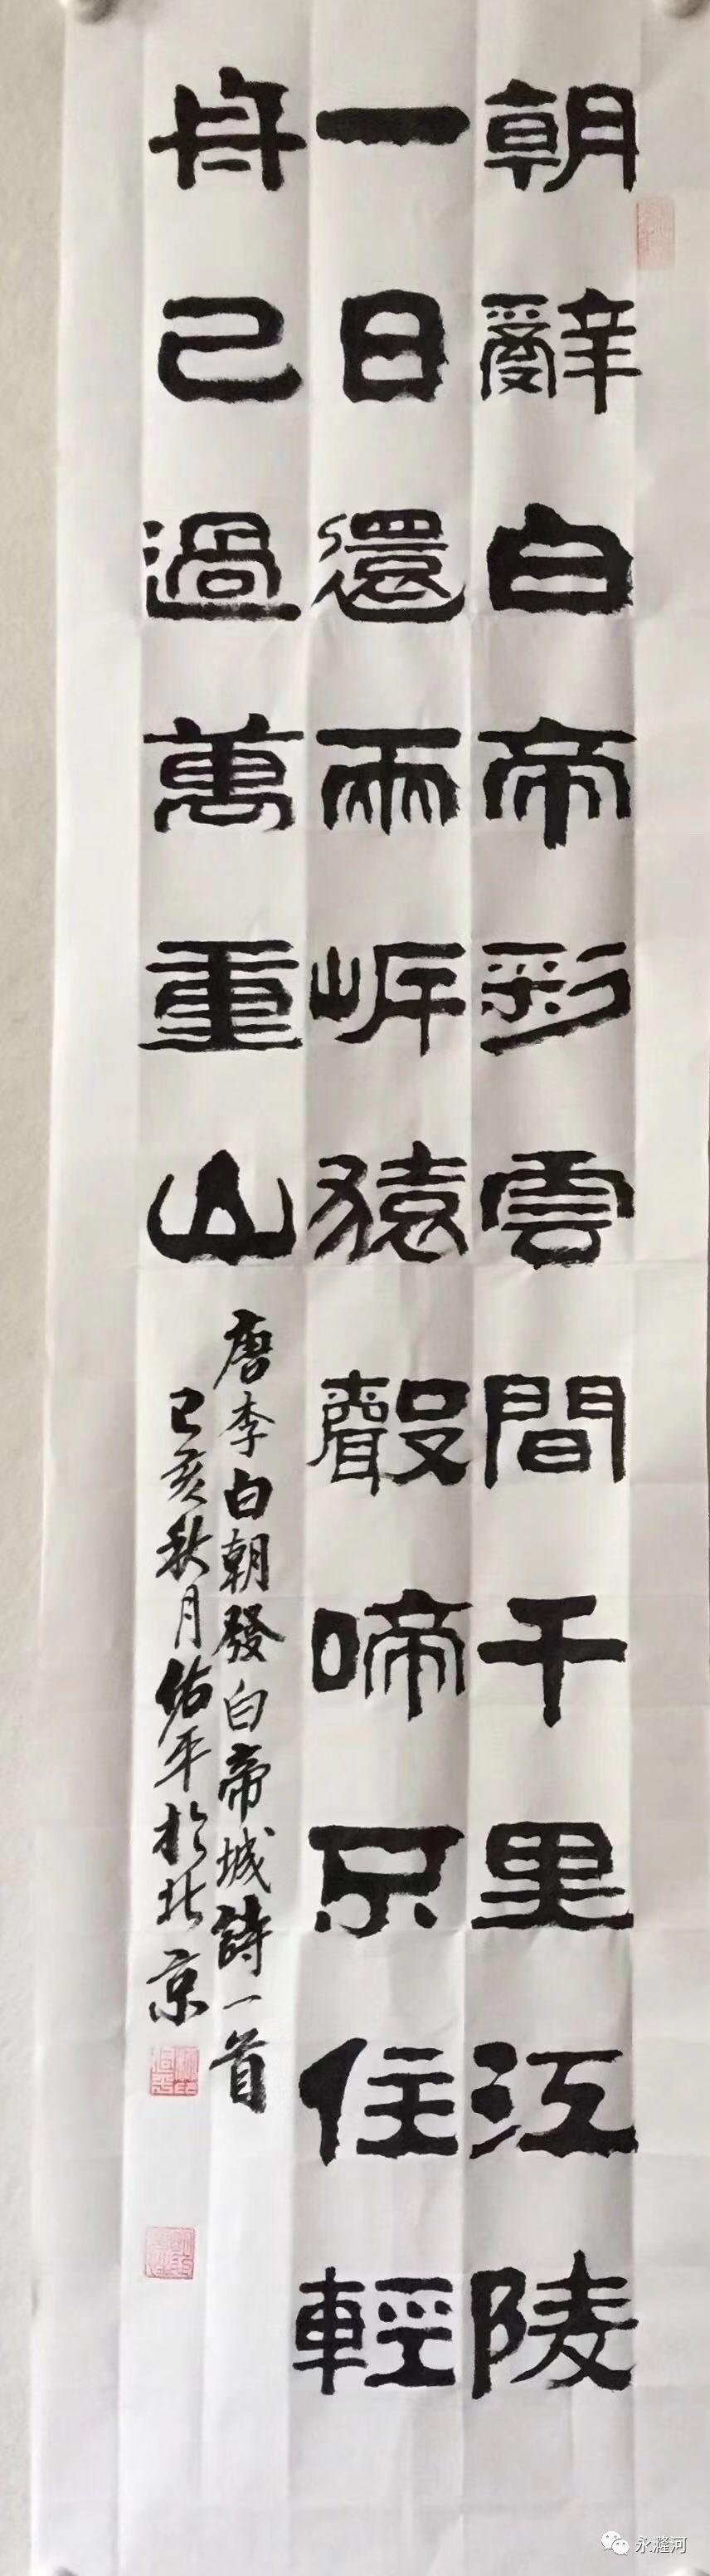 朝辭白帝彩雲間千里江陵
一日還兩岸猿聲啼不住輕
舟已過萬重山
唐李白朝發白帝城詩一首
己亥秋月佑平於北京
永漋河